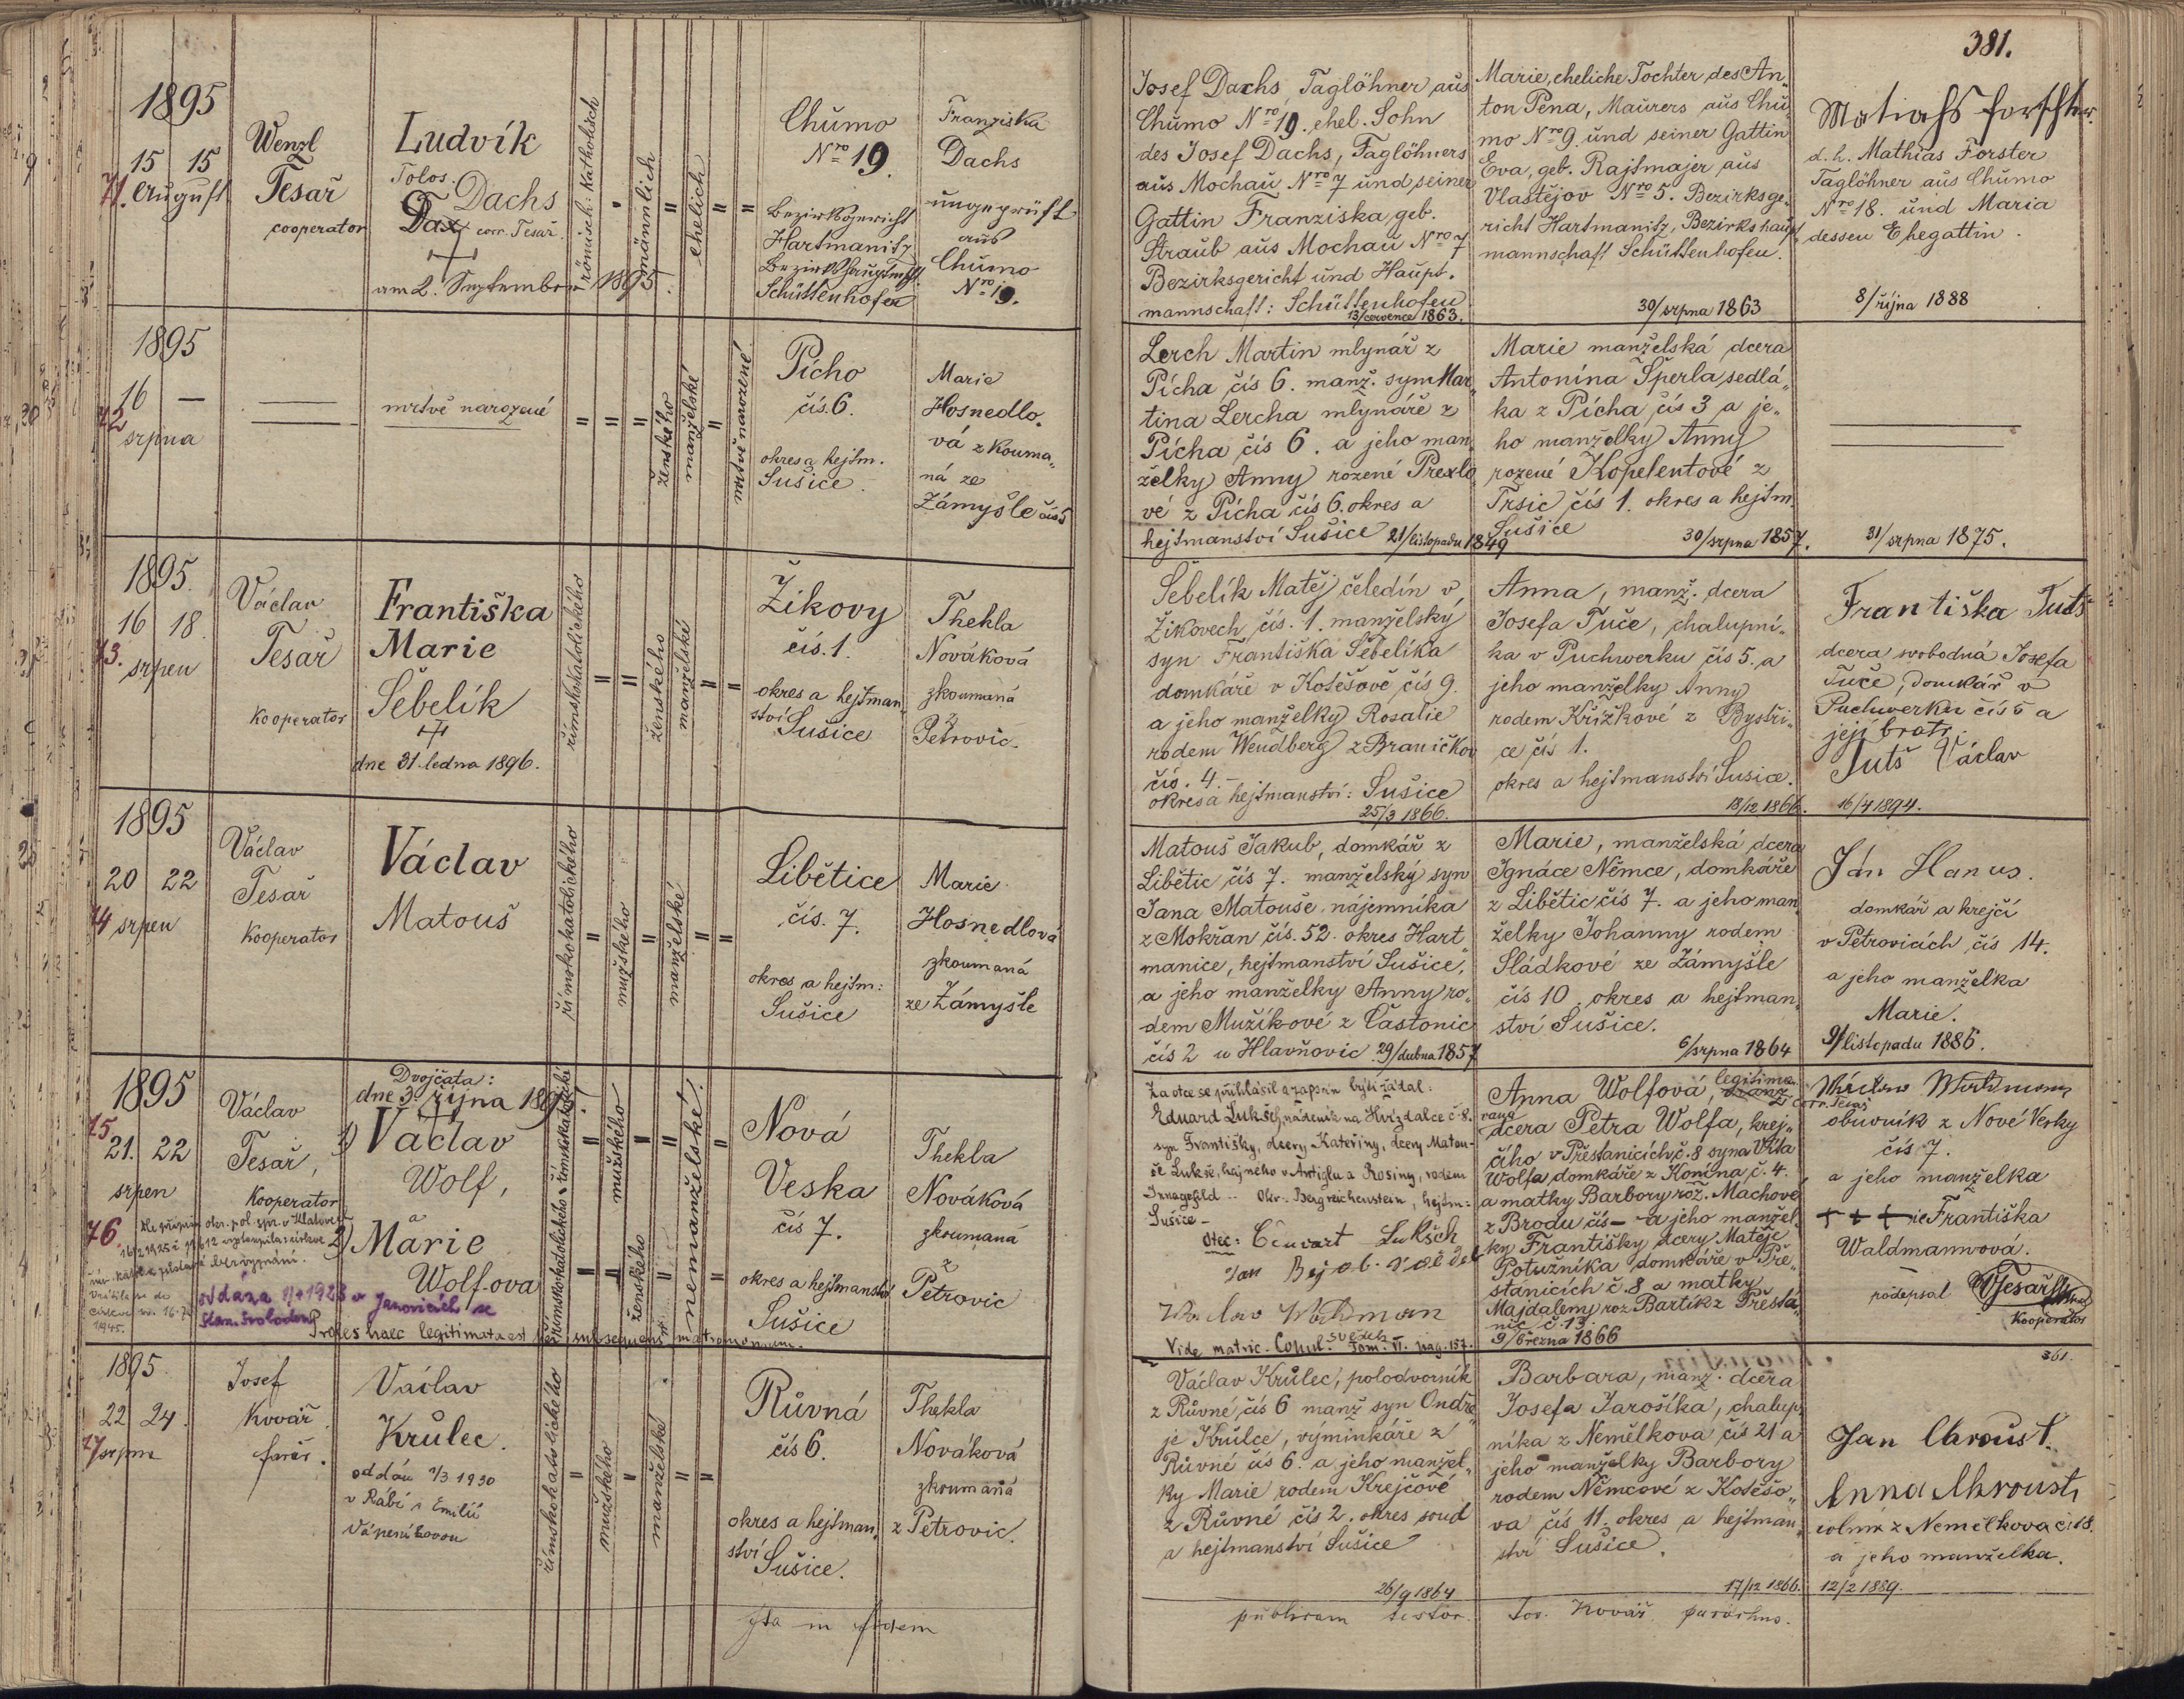 381.
1895
15 15
71. August
Wenzl
Tesař
cooperator
Ludvík
Dachs
Dax corr. Tesař.
am 2. September 1895.
römisch-katholisch
männlich
ehelich
Chumo
Nro 19.
Bezirksgericht
Hartmanitz
Schüttenhofen
Franziska
Dachs
ungeprüft
aus
Chumo
Nro 19.
Josef Dachs Taglöhner aus
Chumo Nro 19. ehel. Sohn
des Josef Dachs, Taglöhners
aus Mochau Nro 7 und seiner
Gattin Franziska, geb.
Straub aus Mochau Nro 7
Bezirksgericht und Haupt-
mannschaft: Schüttenhofen.
13/července 1863.
Marie, eheliche Tochter des An-
ton Pena, Maurers aus Chu-
mo Nro 9. und seiner Gattin
Eva, geb. Rajtmajer aus
Vlastějov Nro 5. Bezirksge-
richt Hartmanitz, Bezirkshaupt-
mannschaft Schüttenhofen.
30/srpna 1863
Matiahs Forschter.
d. h. Mathias Forster
Taglöhner aus Chumo
Nro 18. und Maria
dessen Ehegattin.
8/října 1888
1895
16 —
72
srpna
mrtvě narozené
ženského
manželské
mrtvě narozené
Pícho
čís. 6.
okres a hejtm.
Sušice.
Marie
Hosnedlo-
vá zkouma-
ná ze
Zámyšle čís 5
Lerch Martin mlynář z
Pícha čís 6. manž. syn Mar-
tina Lercha mlynáře z
Pícha čís 6. a jeho man-
želky Anny rozené Prexlo-
vé z Pícha čís 6. okres a
hejtmanství Sušice 21/listopadu 1849
Marie manželská dcera
Antonína Šperla, sedlá-
ka z Pícha čís 3 a je-
ho manželky Anny
rozené Kopelentové z
Trsic čís 1. okres a hejtm.
Sušice 30/srpna 1857.
31/srpna 1875.
1895.
16 18.
73.
srpen
Václav
Tesař
Kooperator
Františka
Marie
Šebelík
dne 31. ledna 1896.
římskokatolického
ženského
manželské
Žikovy
čís. 1.
okres a hejtman-
ství
Sušice
Thekla
Nováková
zkoumaná
z
Petrovic.
Šebelík Matěj čeledín v
Žikovech čís. 1. manželský
syn Františka Šebelíka
domkáře v Kotěšově čís 9.
a jeho manželky Rosalie
rodem Wendberg z Braničkov
čís. 4.
okres a hejtmanství: Sušice
25/3 1866.
Anna, manž. dcera
Josefa Tuče, chalupní-
ka v Puchwerku čís 5. a
jeho manželky Anny
rodem Křížkové z Bystři-
ce čís 1.
okres a hejtmanství Sušice.
18/12 1866.
Františka Tutš
dcera svobodná Josefa
Tuče, domkář v
Puchverku čís 5 a
její bratr.
Tutš Václav
16/4 1894.
1895
20 22
74 srpen
Václav
Tesař
Kooperator
Václav
Matouš
římskokatolického
mužského
manželské
Libětice
čís. 7.
okres a hejtm:
Sušice
Marie
Hosnedlová
zkoumaná
ze Zámyšle
Matouš Jakub, domkář z
Libětic čís 7. manželský syn
Jana Matouše nájemníka
z Mokřan čís. 52. okres Hart-
manice, hejtmanství Sušice,
a jeho manželky Anny ro-
dem Mužíkové z Častonic
čís 2 u Hlavňovic 29/dubna 1857
Marie, manželská dcera
Ignáce Němce, domkáře
z Libětic čís 7. a jeho man-
želky Johanny rodem
Sládkové ze Zámyšle
čís 10. okres a hejtman-
ství Sušice.
6/srpna 1864
Ján Hanus.
domkář a krejčí
v Petrovicích čís 14.
a jeho manželka
Marie.
9/listopadu 1886.
1895
75.
21. 22
srpen
76.
Václav
Tesař,
Kooperator
Dvojčata:
dne 3. října 1895
1) Václav
Wolf,
a
2) Marie
Wolfova
oddána 1928 v Janovicích se
Stan. Svobodou
Proles haec legitimata est per subsequens matrimonium.
mužského
ženského
nemanželské
Nová
Veska
čís 7.
okres a hejtmanství
Sušice
Thekla
Nováková
zkoumaná
z
Petrovic
Za otce se přihlásil a zapsán býti žádal:
Eduard Lukšch, nádeník na Hvízdalce č. 8.
syn Františky, dcery Kateřiny, dcery Matou-
še Lukše, hajného v Antiglu a Rosiny, rodem
Okr. Bergreichenstein, hejtm:
Sušice -
Otec: Eduart Lukšch
Vide matric. Copul. Tom. VI. pag. 157.
Anna Wolfová, legitimo-
vaná
dcera Petra Wolfa, krej-
čího v Přestanicích č. 8 syna Víta
Wolfa domkáře z Konína č. 4.
a matky Barbory roz. Machové
z Brodu čís — a jeho manžel-
ky Františky dcery Matěje
Potužníka domkáře v Pře-
stanicích č. 8 a matky
Majdaleny roz Bartík z Přesta-
nic č. 13.
9/března 1866
obuvník z Nové Vesky
čís 7.
a jeho manželka
+ + + Františka
Waldmannová.
podepsal VTesař
Kooperator
361.
1895.
22 24.
77 srpna
Josef
Kovář
farář.
Václav
Krůlec.
oddán 1/3 1930
v Rábí s Emilií
Vápeníkovou
římskokatolického
mužského
manželské
Růvná
čís 6.
okres a hejtman-
ství
Sušice.
Thekla
Nováková
zkoumaná
z Petrovic.
Václav Krůlec, polodvorník
z Růvné čís 6 manž syn Ondře-
je Krůlce, výminkáře z
Růvné čís 6. a jeho manžel-
ky Marie rodem Krejčové
z Růvné čís 2. okres soud
a hejtmanství Sušice
26/9 1864
Barbara, manž. dcera
Josefa Jarošíka, chalup-
níka z Nemělkova čís 21 a
jeho manželky Barbory
rodem Němcové z Kotěšo-
va čís 11. okres a hejtman-
ství Sušice.
17/12 1866.
Jan Chroust.
Anna Chroust
z Nemělkova čís 18.
a jeho manželka.
12/2 1889.
Ita in fidem
publicam testor.
Jos. Kovář parochus.